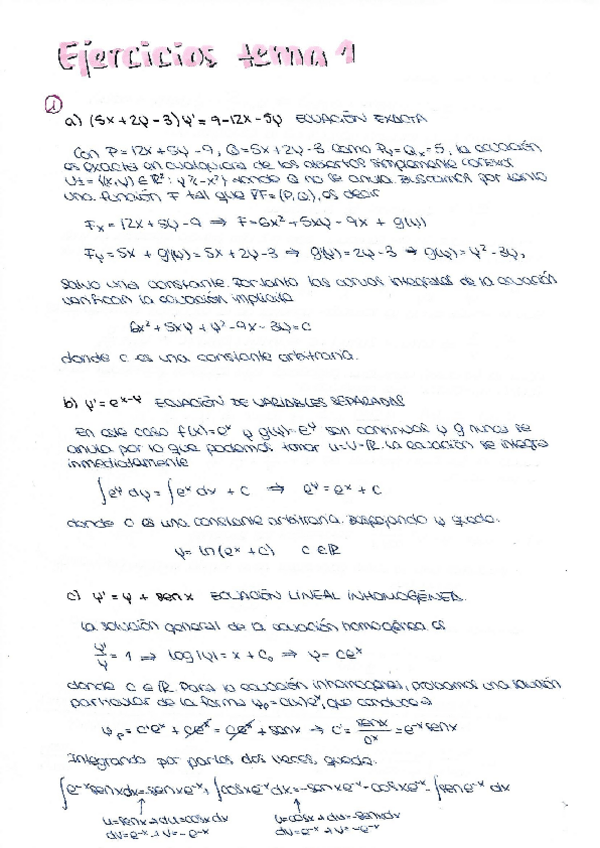 Ejercicios tema 1
1
a) (5x+2y-3)y' = 9-12x-5y ECUACIÓN EXACTA
Con P=12x+5y-9, Q=5x+2y-3 como Py=Qx=5, la ecuación
es exacta en cualquiera de los abiertos simplemente conexos
donde Q no se anula. Buscamos por tanto
una función F tal que ∇F=(P,Q), es decir
Fx = 12x+5y-9 ⇒ F=6x²+5xy-9x+g(y)
Fy=5x+g'(y)=5x+2y-3 ⇒ g'(y)=2y-3 ⇒ g(y)=y²-3y,
salvo una constante. Por tanto las curvas integrales de la ecuación
verifican la ecuación implícita
6x²+5xy+y²-9x-3y=c
donde c es una constante arbitraria.
b) y'=e^{x-y} ECUACIÓN DE VARIABLES SEPARADAS
En este caso f(x)=e^x y g(y)=e^y son continuas y g nunca se
anula por lo que podemos tomar U=V=ℝ. La ecuación se integra
inmediatamente
∫e^y dy = ∫e^x dx + c ⇒ e^y = e^x + c
donde c es una constante arbitraria. Despejando y queda.
y= ln(e^x+c) c∈ℝ
c) y'=y+senx ECUACIÓN LINEAL INHOMOGÉNEA.
La solución general de la ecuación homogénea es
y'/y = 1 ⇒ log|y|=x+c₀ ⇒ y=ce^x
donde c∈ℝ. Para la ecuación inhomogénea, probamos una solución
particular de la forma yp=c(x)e^x, que conduce a
y'p=c'e^x+ce^x=ce^x+senx → c'=senx/e^x=e^{-x}senx
Integrando por partes dos veces, queda.
∫e^{-x}senxdx=-senxe^{-x}+∫cosxe^{-x}dx=-senxe^{-x}-cosxe^{-x}-∫sene^{-x}dx
u=senx→du=cosxdx u=cosx→du=-senxdx
dv=e^{-x}→v=-e^{-x} dv=e^{-x}→v=-e^{-x}